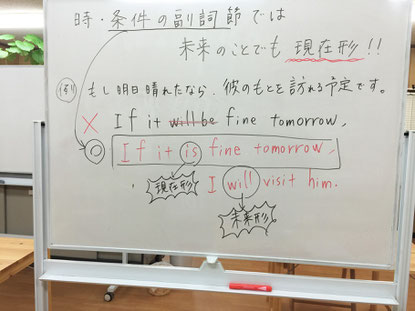 時・条件の副詞節では
未来のことでも 現在形!!
例 もし明日晴れたなら、彼のもとを訪れる予定です。
× If it will be fine tomorrow,
◎ If it is fine tomorrow,
現在形 I will visit him.
未来形